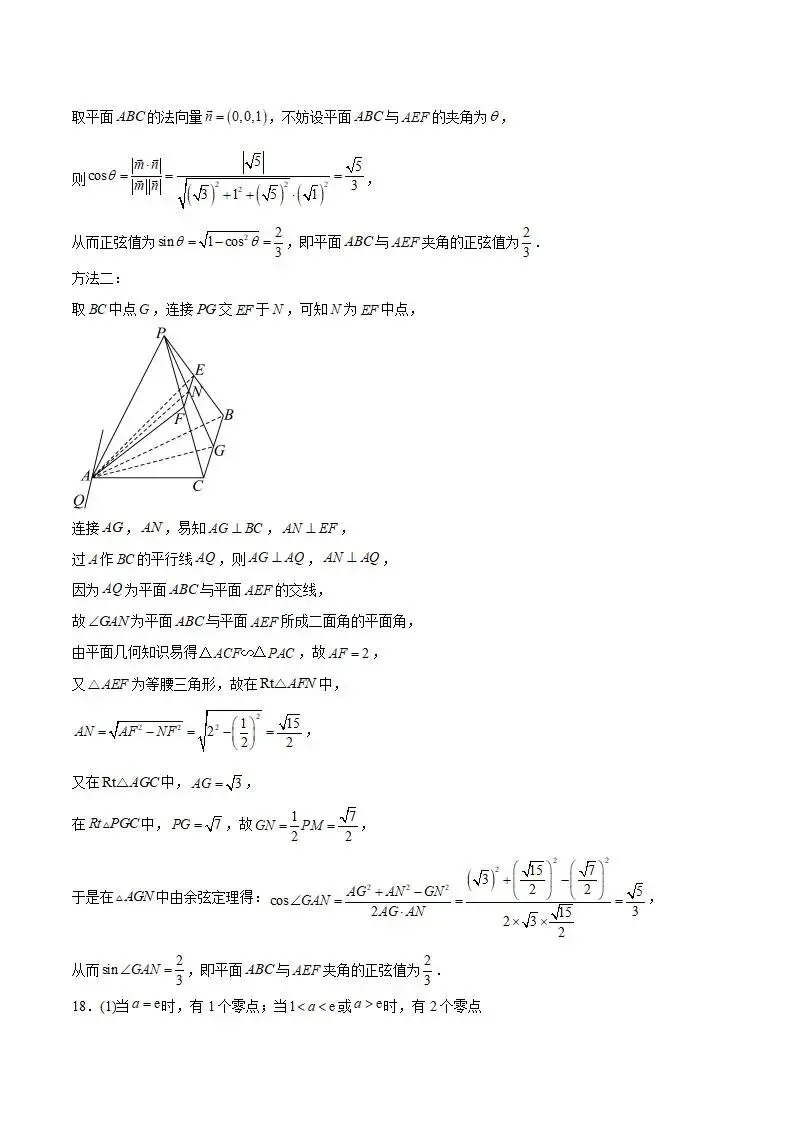 取平面ABC的法向量n⃗=(0,0,1),不妨设平面ABC与AEF的夹角为θ,
则cosθ=|m⃗·n⃗|/|m⃗||n⃗|=|√5|/√((√3)²+1²+(√5)²·(√1)²)=√5/3,
从而正弦值为sinθ=√(1−cos²θ)=2/3,即平面ABC与AEF夹角的正弦值为2/3.
方法二:
取BC中点G,连接PG交EF于N,可知N为EF中点,
P
E
N
F
B
G
A
C
Q
连接AG,AN,易知AG⊥BC,AN⊥EF,
过A作BC的平行线AQ,则AG⊥AQ,AN⊥AQ,
因为AQ为平面ABC与平面AEF的交线,
故∠GAN为平面ABC与平面AEF所成二面角的平面角,
由平面几何知识易得△ACF∽△PAC,故AF=2,
又△AEF为等腰三角形,故在Rt△AFN中,
AN=√(AF²−NF²)=√(2²−(1/2)²)=√15/2,
又在Rt△AGC中,AG=√3,
在Rt△PGC中,PG=√7,故GN=1/2PM=√7/2,
于是在△AGN中由余弦定理得:cos∠GAN=(AG²+AN²−GN²)/(2AG·AN)=((√3)²+(√15/2)²−(√7/2)²)/(2×√3×√15/2)=√5/3,
从而sin∠GAN=2/3,即平面ABC与AEF夹角的正弦值为2/3.
18.(1)当a=e时,有1个零点;当1<a<e或a>e时,有2个零点